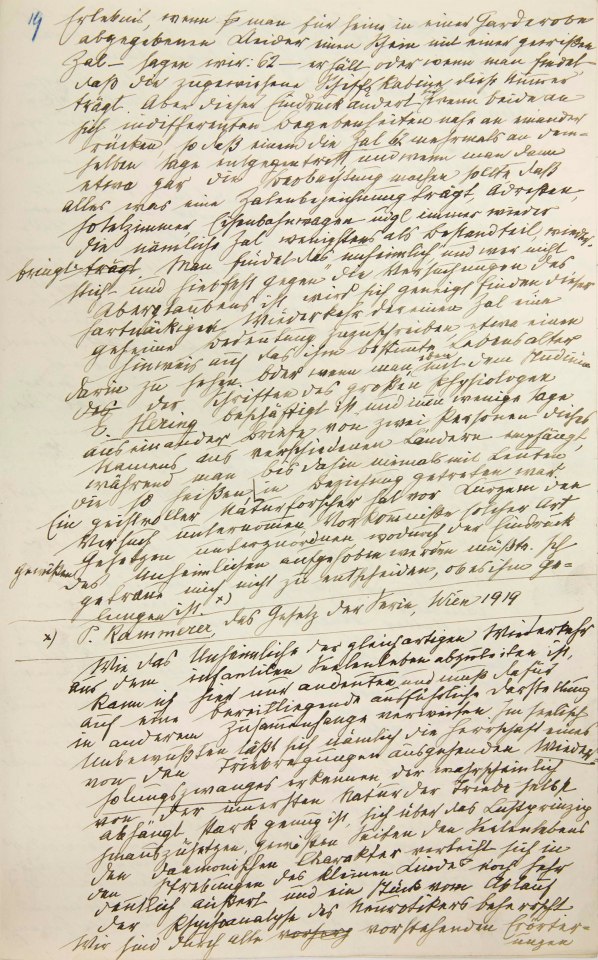 19
Erlebnis, wenn man für seine in einer Garderobe
abgegebenen Kleider einen Schein mit einer gewißen
Zal – sagen wir: 62 – erhält oder wenn man findet
daß die zugewiesene Schiffskabine diese Numer
trägt. Aber dieser Eindruck ändert sich, wenn beide an
sich indifferenten Begebenheiten nahe an einander
rücken, so daß einem die Zal 62 mehrmals an dem-
selben Tage entgegentritt und wenn man dann
etwa gar die Beobachtung machen sollte daß
alles was eine Zalenbezeichnung trägt, Adreßen,
Hotelzimmer, Eisenbahnwagen udgl immer wieder
die nämliche Zal wenigstens als Bestandteil wieder-
bringt trägt. Man findet das unheimlich und wer nicht
stich- und hiebfest gegen die Versuchungen des
Aberglaubens ist, wird sich geneigt finden dieser
hartnäckigen Wiederkehr der einen Zal eine
geheime Bedeutung zuzuschreiben etwa einen
Hinweis auf das ihm bestimte Lebensalter
darin zu sehen. Oder wenn man eben mit dem Studium
der Schriften des großen Physiologen
E. Hering beschäftigt ist und nun wenige Tage
auseinander Briefe von zwei Personen dieses
Namens aus verschiedenen Ländern empfängt,
während man bis dahin niemals mit Leuten
die so heißen, in Beziehung getreten war.
Ein geistvoller Naturforscher hat vor Kurzem den
Versuch unternomen Vorkomniße solcher Art
gewißen Gesetzen unterzuordnen wodurch der Eindruck
des Unheimlichen aufgehoben werden müßte. Ich
getraue mich nicht zu entscheiden, ob es ihm ge-
lungen ist. x)
x) P. Kammerer, das Gesetz der Serie, Wien 1919
Wie das Unheimliche der gleichartigen Wiederkehr
aus dem infantilen Seelenleben abzuleiten ist,
kann ich hier nur andeuten und muß dafür
auf eine bereitliegende ausführliche Darstellung
in anderem Zusammenhange verweisen. Im seelisch
Unbewußten läßt sich nämlich die Herrschaft eines
von den Triebregungen ausgehenden Wieder-
holungszwanges erkennen der wahrscheinlich
von der innersten Natur der Triebe selbst
abhängt stark genug ist, sich über das Lustprinzip
hinauszusetzen, gewißen Seiten des Seelenlebens
den daemonischen Charakter verleiht sich in
den Strebungen des kleinen Kindes noch sehr
deutlich äußert und ein Stück vom Ablauf
der Psychoanalyse des Neurotikers beherrscht
Wir sind durch alle vorstehenden Erörter-
ungen